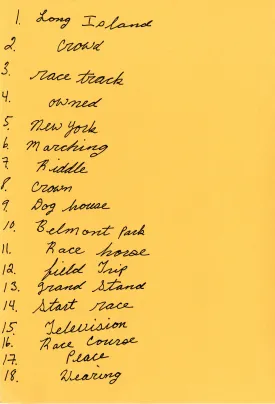 1. Long Island
2. Crowd
3. race track
4. owned
5. New York
6. Marching
7. Riddle
8. Crown
9. Dog house
10. Belmont Park
11. Race horse
12. field Trip
13. Grand Stand
14. Start race
15. Television
16. Race Course
17. Place
18. Wearing